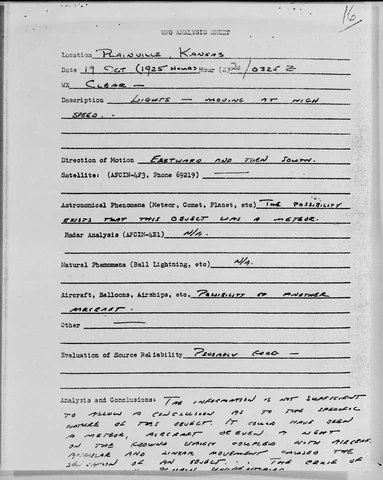 16
UFO ANALYSIS SHEET
Location PLAINVILLE, KANSAS
Date 19 OCT (1925 HOURS) Hour (Z) 20/0325 Z
WX CLEAR —
Description LIGHTS — MOVING AT HIGH
SPEED.
Direction of Motion EASTWARD AND THEN SOUTH.
Satellite: (AFCIN-4F3, Phone 69219) —
Astronomical Phenomena (Meteor, Comet, Planet, etc) THE POSSIBILITY
EXISTS THAT THIS OBJECT WAS A METEOR.
Radar Analysis (AFCIN-4E1) N/A.
Natural Phenomena (Ball Lightning, etc) N/A.
Aircraft, Balloons, Airships, etc. POSSIBILITY OF ANOTHER
AIRCRAFT.
Other —
Evaluation of Source Reliability PROBABLY GOOD —
Analysis and Conclusions: THE INFORMATION IS NOT SUFFICIENT
TO ALLOW A CONCLUSION AS TO THE SPECIFIC
NATURE OF THIS OBJECT. IT COULD HAVE BEEN
A METEOR, AIRCRAFT OR EVEN A LIGHT
ON THE GROUND WHICH COUPLED WITH AIRCRAFT
ANGULAR AND LINEAR MOVEMENT CAUSED THE
OF AN OBJECT... THE CAUSE OF